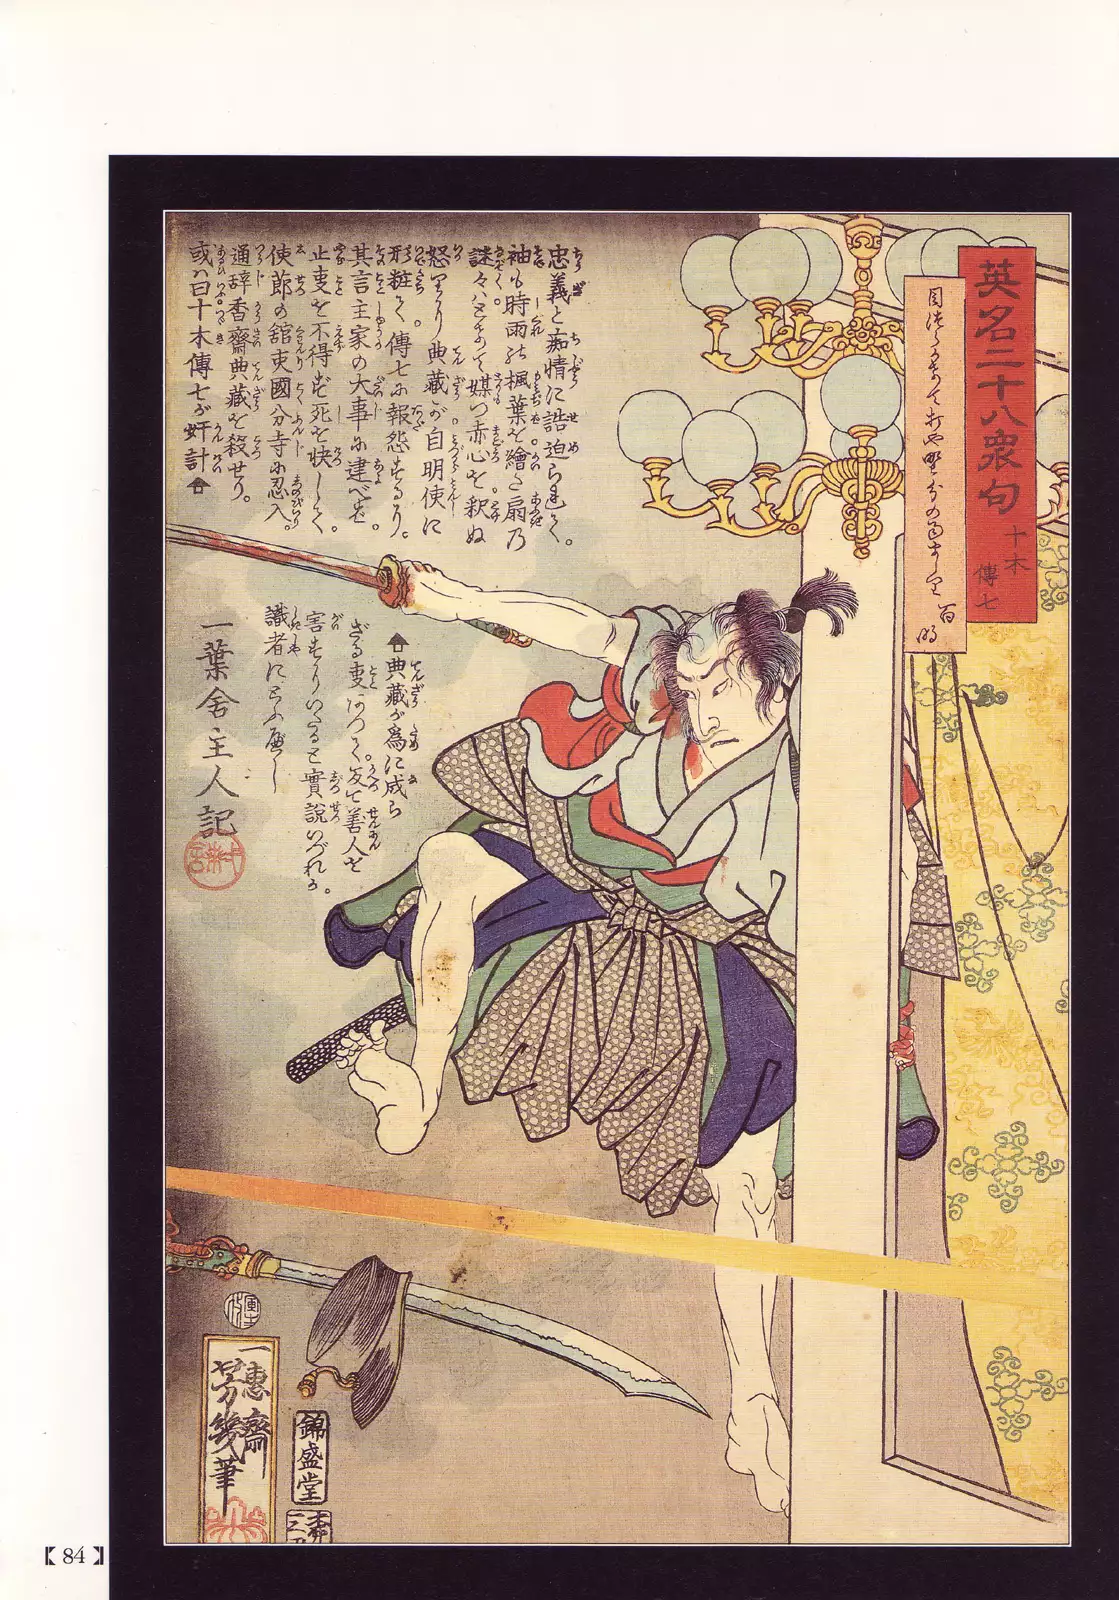 英名二十八衆句
十木
傳七
百明
忠義と痴情に詰迫られて。
袖も時雨の楓葉を繪た扇の
謎々はとあつて媒つ赤心を釈ぬ
怒より典藏が自明使に
形粧て。傳七に報怨するり。
其言主家の大事に建べき
止事を不得ず死を快して
使節の舘吏國分寺に忍入。
通辞香齋典藏を殺せり。
或は曰十木傳七が奸計
典藏が為に成ら
ざる事あつて。反て善人を
害すりいたると實説いづれか。
識者に問べし
一葉舎主人記
一蕙齋
芳幾筆
錦盛堂
【84】